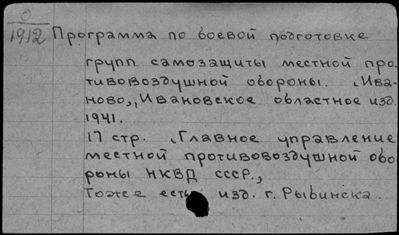 О
1912
Программа по боевой подготовке
групп самозащиты местной про-
тивовоздушной обороны. „Ива-
ново„, Ивановское областное изд.
1941.
17 стр. „Главное управление
местной противовоздушной обо
роны НКВД СССР„
Тоже есть изд. г. Рыбинска.